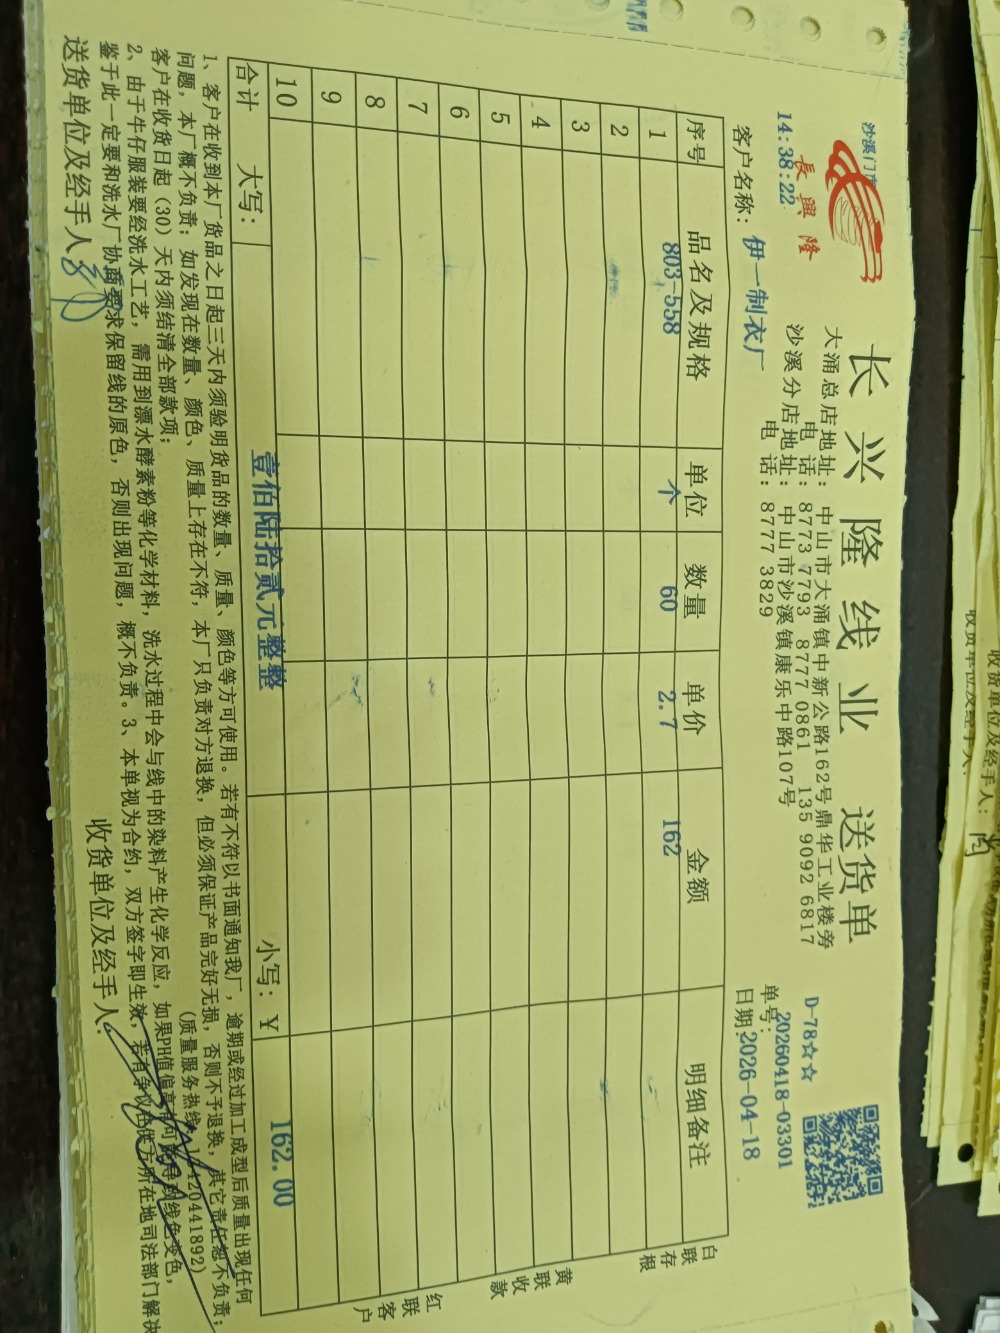 沙溪门市
長興隆
14:38:22
长兴隆线业 送货单
大涌总店地址：中山市大涌镇中新公路162号鼎华工业楼旁
电话：8773 7793 8777 0861 135 9092 6817
沙溪分店地址：中山市沙溪镇康乐中路107号
电话：8777 3829
D-78☆☆
单号：20260418-03301
客户名称：伊一制衣厂
日期：2026-04-18
序号 品名及规格 单位 数量 单价 金额 明细备注
1 803-558 个 60 2.7 162
2
3
4
5
6
7
8
9
10
合计 大写：壹佰陆拾贰元整整 小写：￥ 162.00
白联存根
黄联收款
红联客户
1、客户在收到本厂货品之日起三天内须验明货品的数量、质量、颜色等方可使用。若有不符以书面通知我厂，逾期或经过加工成型后质量出现任何
问题，本厂概不负责；如发现在数量、颜色、质量上存在不符，本厂只负责对方退换，但必须保证产品完好无损，否则不予退换，其它责任恕不负责；
客户在收货日起（30）天内须结清全部款项；
(质量服务热线: 420441892)
2、由于牛仔服装要经洗水工艺，需用到漂水酵素粉等化学材料，洗水过程中会与线中的染料产生化学反应，如果PH值偏高 线色变色，
鉴于此一定要和洗水厂协商要求保留线的原色，否则出现问题，概不负责。3、本单视为合约，双方签字即生效，若有争议在供方所在地司法部门解决
送货单位及经手人：
收货单位及经手人：
收货单位及经手人：
收货单位及经手人：